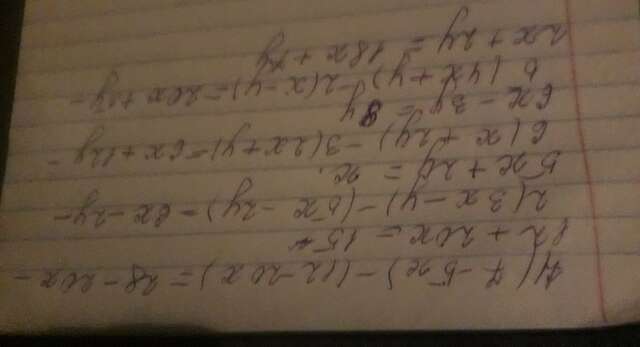 4(7-5x)-(12-20x)=28-20x-
12+20x=15.
2(3x-y)-(5x-2y)=6x-2y-
5x+2y=x.
6(x+2y)-3(2x+y)=6x+12y-
6x-3y=9y
5(4x+y)-2(x-y)=20x+5y-
2x+2y=18x+7y